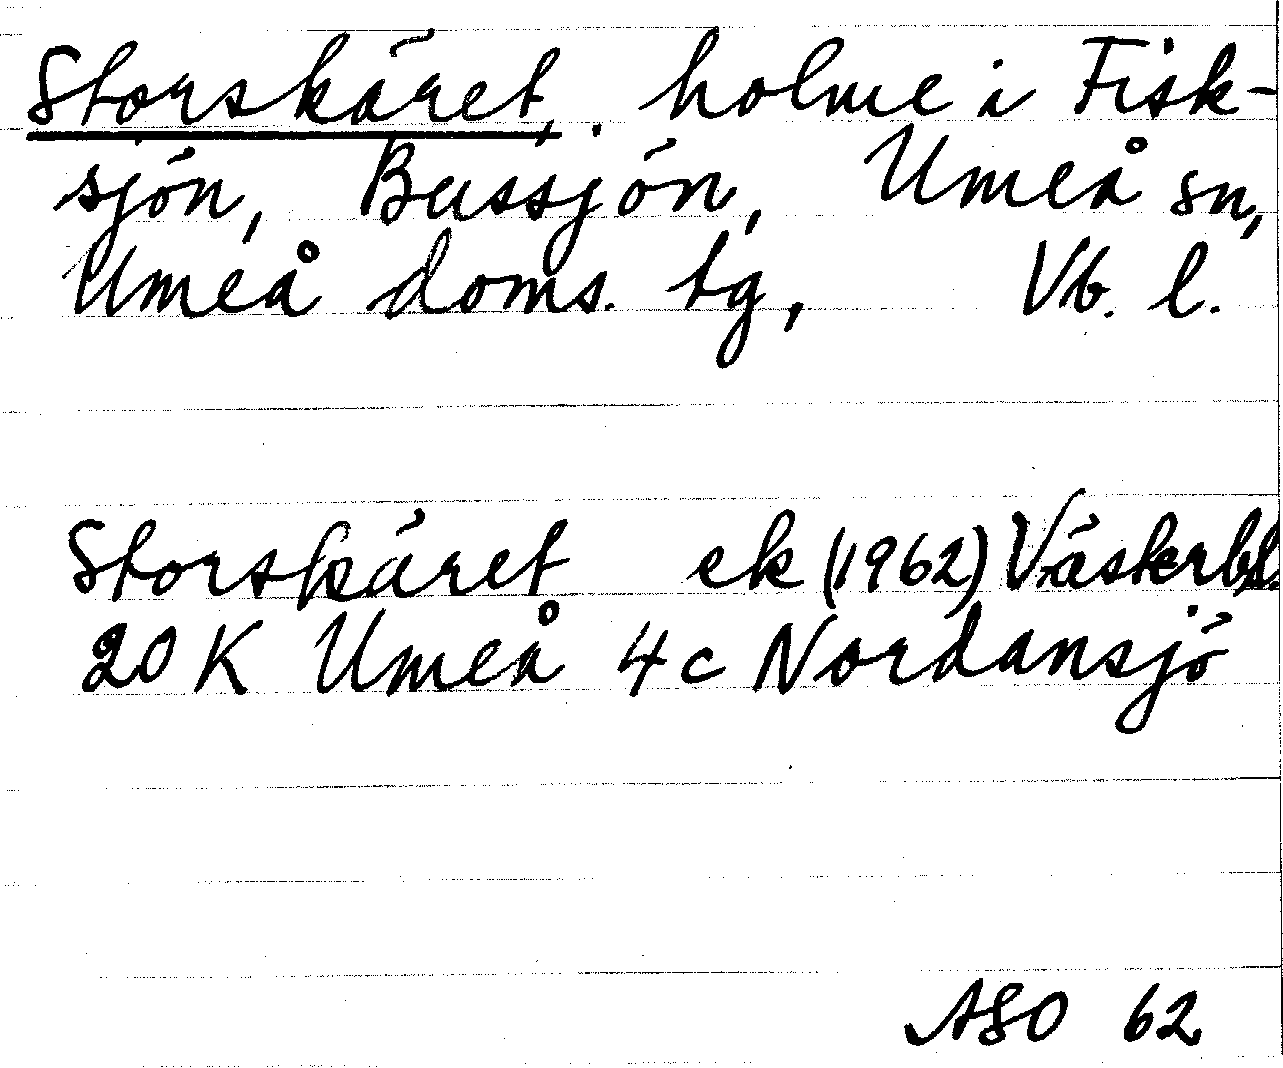 Storskäret, holme i Fisk-
sjön, Bussjön, Umeå sn,
Umeå doms. tg, Vb. l.
Storskäret ek (1962) Västerb.l.
20 K Umeå 4c Nordansjö
ASO 62